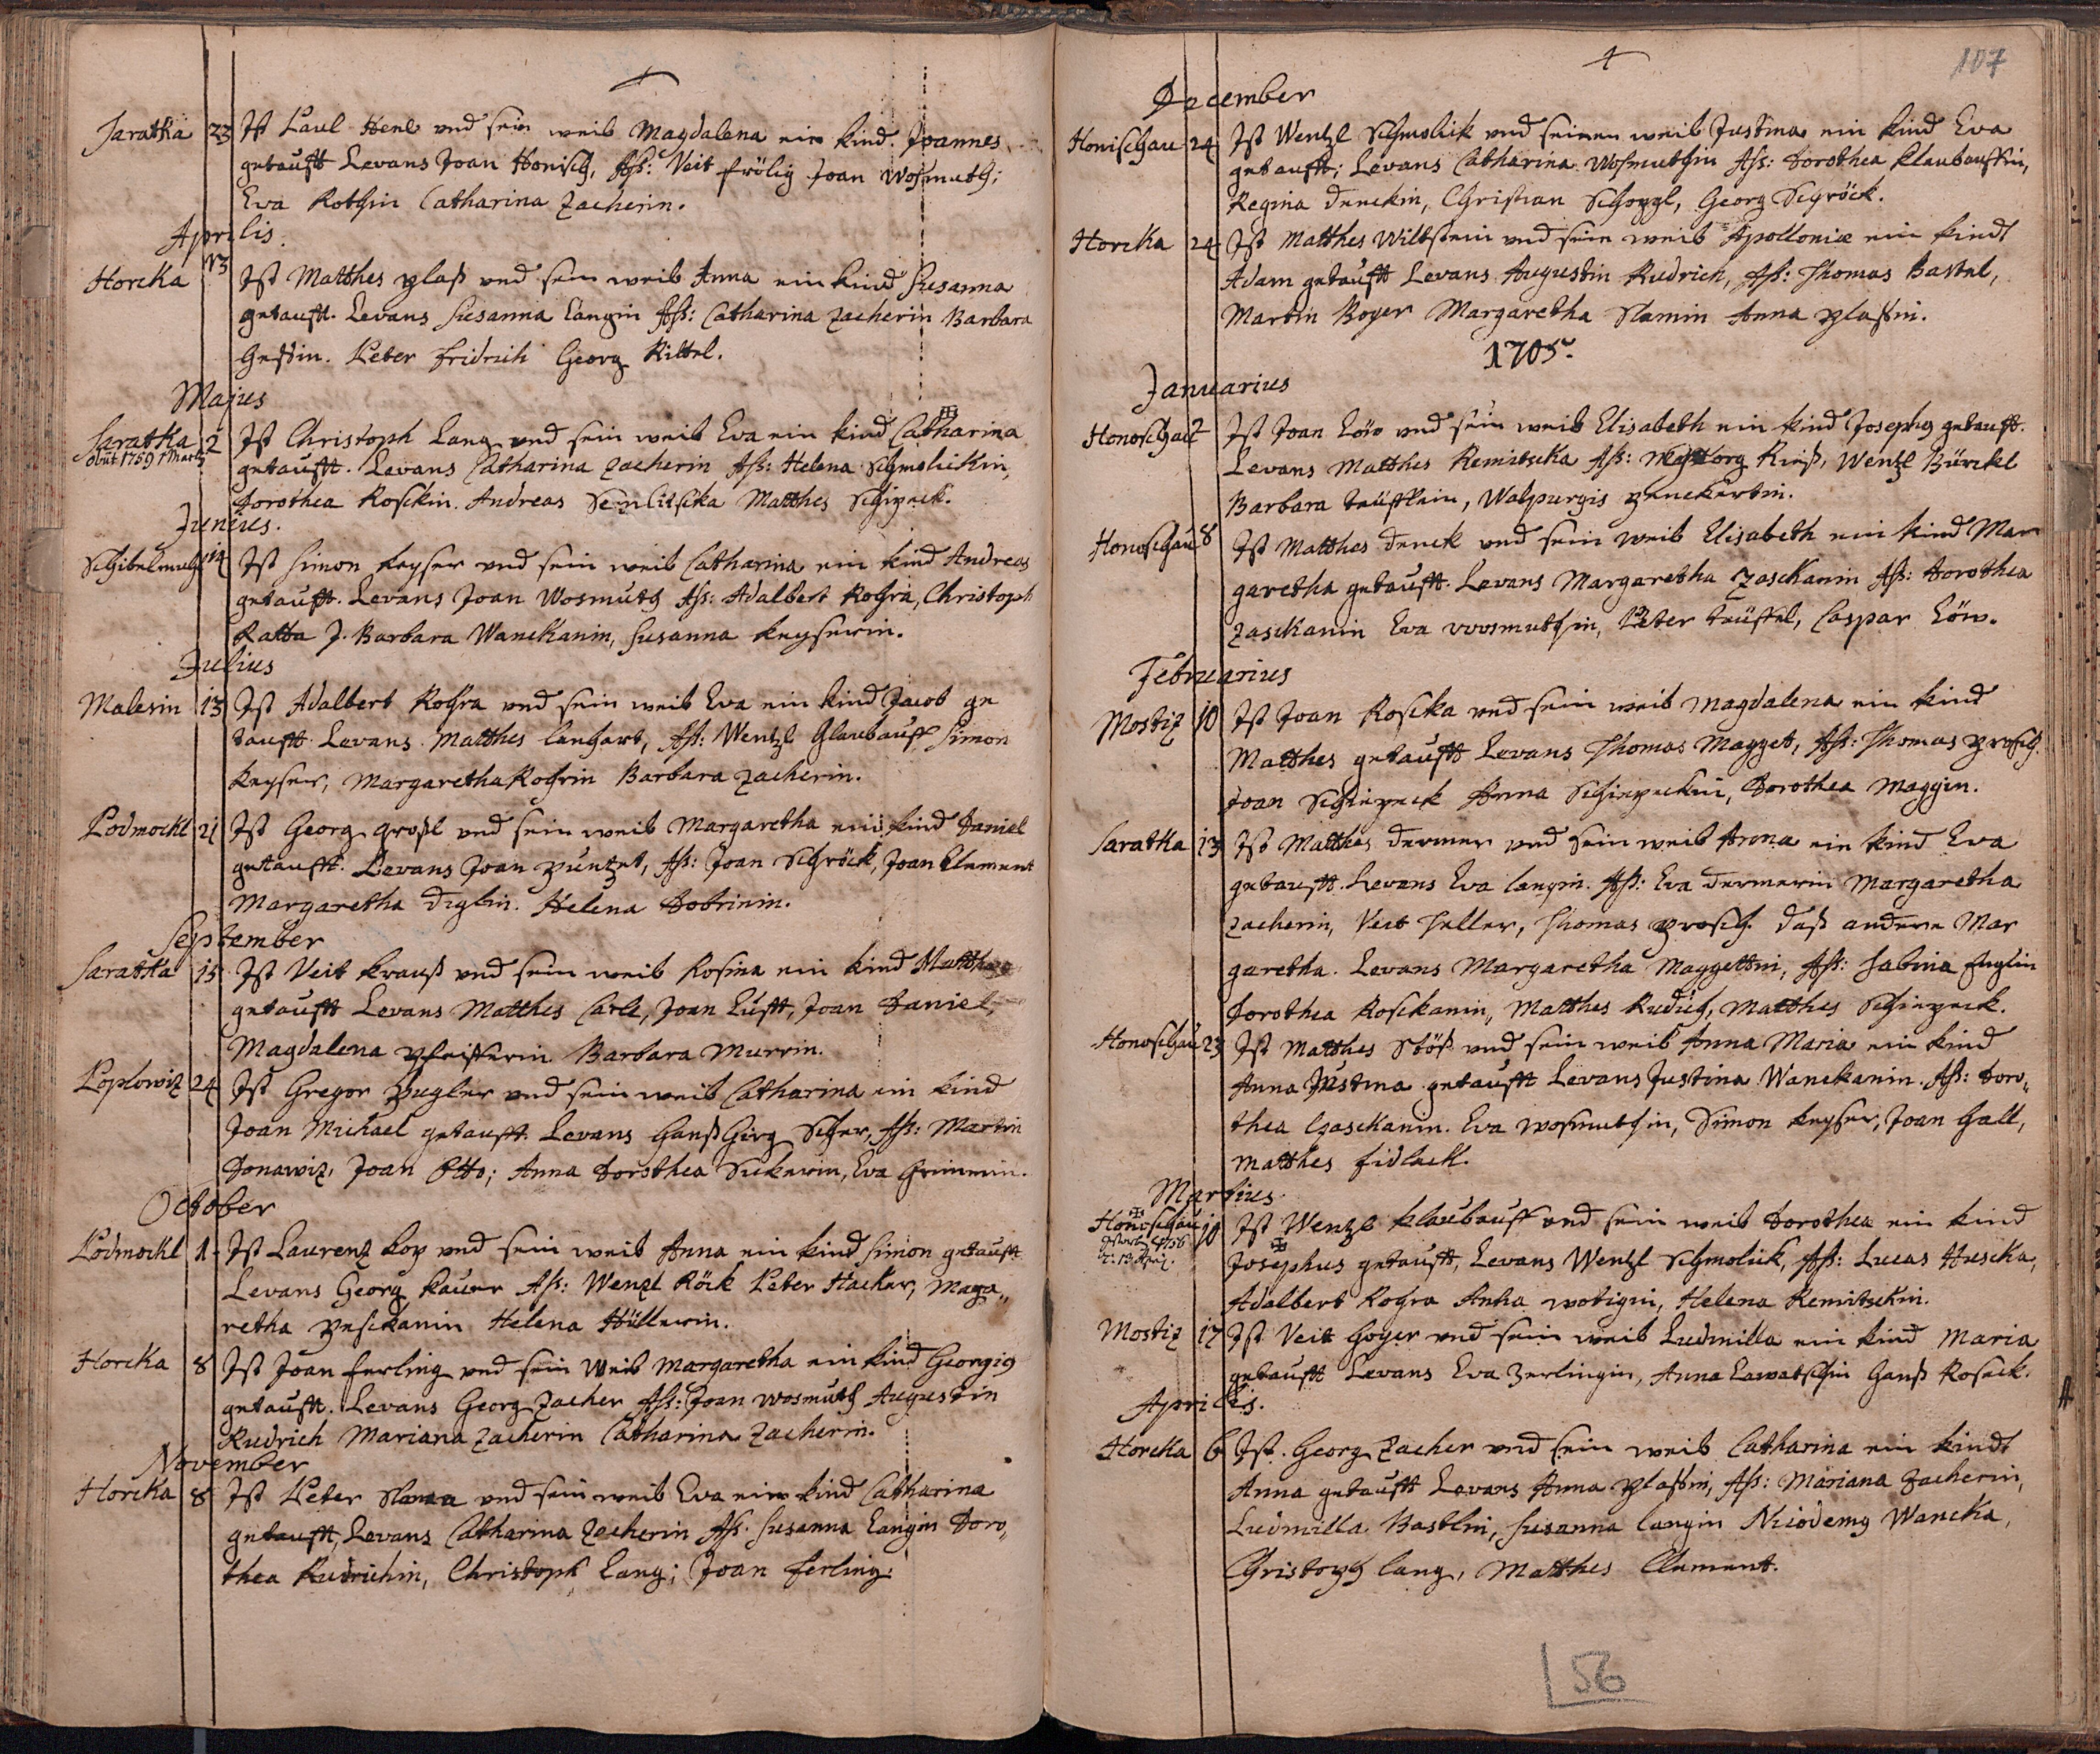 Saratka 23 Ist Paul Henl vnd sein weib Magdalena ein kind Joannes
getaufft Levans Joan Honisch, Ass: Veit frölig Joan Wosmuth;
Eva Rothin Catharina Zacherin.
Aprilis.
Horcka 13 Ist Matthes plass vnd sein weib Anna ein kind Susanna
getaufft. Levans Susanna Langin Ass: Catharina Zacherin Barbara
Peter fridrich Georg Kittel.
Majus
Saratka 2 Ist Christoph Lang vnd sein weib Eva ein kind Catharina
obiit 1759 1 Martj
getaufft. Levans Catharina Zacherin Ass: Helena Schmolickin,
Dorothea Rosckin. Andreas Matthes Schipeck.
Junius.
14 Ist Simon keyser vnd sein weib Catharina ein kind Andreas
getaufft. Levans Joan Wosmuth Ass: Adalbert Rohra, Christoph
Ratta J. Barbara Wanckanin, Susanna keyserin.
Julius
Malesin 13 Ist Adalbert Rohra vnd sein weib Eva ein kind Jacob ge
taufft Levans Matthes langhart, Ass: Wentzl Glaubauff Simon
keyser, Margaretha Rohrin Barbara Zacherin.
Podmockl 21 Ist Georg großl vnd sein weib Margaretha ein kind Daniel
getaufft. Levans Joan puntzet, Ass: Joan Schröck, Joan Clement
Margaretha Diglin. Helena Dobrinin.
September
Saratka 15 Ist Veit krauß vnd sein weib Rosina ein kind Matthæ
getaufft Levans Matthes Carll, Joan Lufft, Joan Daniel,
Magdalena pfeifferin Barbara Murrin.
Poplowiz 24 Ist Gregor pugler vnd sein weib Catharina ein kind
Joan Michael getaufft Levans Hanß Girg Ass: Martin
Donawiz, Joan Otto; Anna Dorothea Eva
October
Podmockl 1. Ist Laurenz kop vnd sein weib Anna ein kind Simon getaufft
Levans Georg kauer Ass: Wenzl Röck Peter Hacker, Marga„
retha pesckanin Helena Hüllerin.
Horcka 8 Ist Joan ferling vnd sein Weib Margaretha ein kind Georgig
getaufft. Levans Georg Zacher Ass: Joan Wosmuth Augustin
Rudrich Mariana Zacherin Catharina Zacherin.
November
Horcka 8 Ist Peter Slama vnd sein weib Eva ein kind Catharina
getaufft, Levans Catharina Zacherin Ass. Susanna Langin Doro„
thea Rudrichin, Christoph Lang; Joan ferling.
107
December
Honischau 24 Ist Wentzl Schmolik vnd seinen weib Justina ein kind Eva
getaufft; Levans Catharina Wosmuthin Ass: Dorothea klaubauffin,
Regina Denckin, Christian Georg Schröck.
Horcka 24 Ist Matthes Wiltstein vnd sein weib Apolloniæ ein kindt
Adam getaufft Levans Augustin Rudrich, Ass: Thomas Bastel,
Martin Boyer Margaretha Slamin Anna plaßin.
1705.
Januarius
Honoschau 2 Ist Joan Löw vnd sein weib Elisabeth ein kind Josephg getaufft.
Levans Matthes Remitscka Ass: Rieß, Wentzl Bürckl
Barbara teüfflin, Walpurgis
Honoschau 8 Ist Matthes Denck vnd sein weib Elisabeth ein kind Mar
garetha getaufft. Levans Margaretha Zasckanin Ass: Dorothea
Zasckanin Eva wosmuthin, Peter teüffel, Caspar Löw.
Februarius
Mostiz 10 Ist Joan Roscka vnd sein weib Magdalena ein kind
Matthes getaufft Levans Thomas Magget, Ass: Thomas prosch
Joan Schiepeck Anna Schiepeckin, Dorothea Maggin.
Saratka 13 Ist Matthes Dermer vnd sein weib Anna ein kind Eva
getaufft. Levans Eva langin. Ass: Eva Dermerin Margaretha
Zacherin, Veit Heller, Thomas prosch. daß andere Mar
garetha. Levans Margaretha Maggettin, Ass: Sabina
Dorothea Rosckanin, Matthes Rudich, Matthes Schiepeck.
Honoschau 23 Ist Matthes Stöß vnd sein weib Anna Maria ein kind
Anna Justina getaufft Levans Justina Wanckanin. Ass: Doro„
thea Czasckanin. Eva Wosmuthin, Simon keyser, Joan Gall,
Matthes fidlack.
Martius.
Honoschau 10 Ist Wenzl klaubauff vnd sein weib Dorothea ein kind
Josephus getaufft, Levans Wentzl Schmolick, Ass: Lucas Huscka,
Adalbert Rohra Anna wotigin, Helena Remitschkin.
Mostiz 17 Ist Veit Hoyer vnd sein weib Ludmilla ein kind Maria
getaufft Levans Eva Zerlingin, Anna Lawatschin Hanß Rosack.
Aprilis.
Horcka 6 Ist. Georg Zacher vnd sein weib Catharina ein kindt
Anna getaufft Levans Anna plaßin, Ass: Mariana Zacherin,
Ludmilla Bastlin, Susanna langin Nicodemg Wancka,
Christoph lang, Matthes Clement.
56